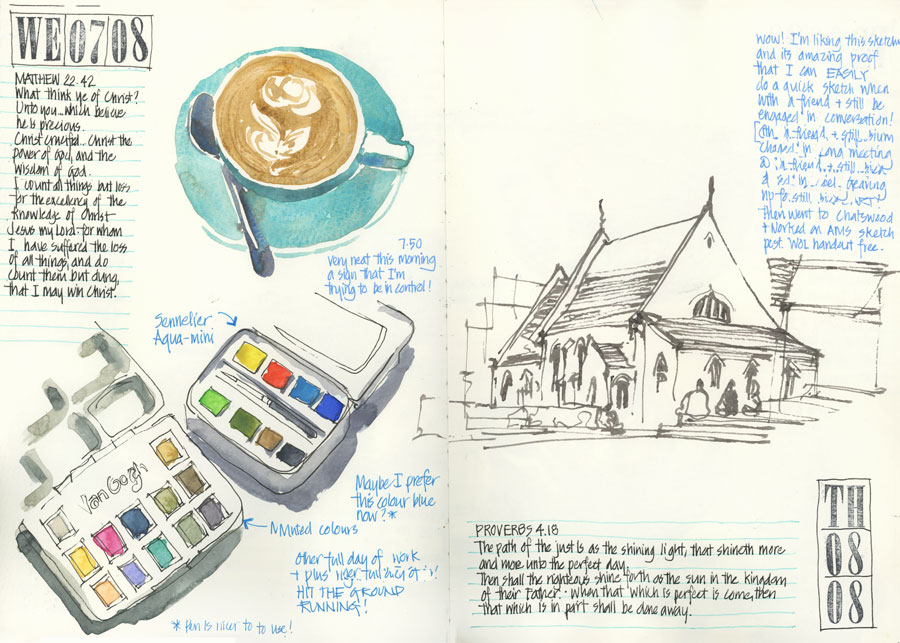 WE 07 08
MATTHEW 22.42
What think ye of Christ?
Unto you...which believe
he is precious.
Christ crucified... Christ the
power of God, and the
wisdom of God.
I count all things but loss
for the excellency of the
knowledge of Christ
Jesus my Lord for whom
I have suffered the loss
of all things, and do
count them but dung,
that I may win Christ.
7.50
very neat this morning
a sign that I'm
trying to be in control!
Sennelier
Aqua-mini
Van Gogh
Maybe I prefer
this colour blue
now?*
colours
Other full day of work
+ plus
HIT THE GROUND
RUNNING!
* pen is nicer to to use!
wow! I'm liking this sketch
and its amazing proof
that I can EASILY
do a quick sketch when
with a friend + still be
engaged in conversation!
a friend + still
in long meeting
a friend + still
still
then went to Chatswood
+ worked on AMS sketch
pest. WOL handout free.
PROVERBS 4.18
The path of the just is as the shining light, that shineth more
and more unto the perfect day.
Then shall the righteous shine forth as the sun in the kingdom
of their Father. When that which is perfect is come, then
that which is in part shall be done away.
TH
08
08